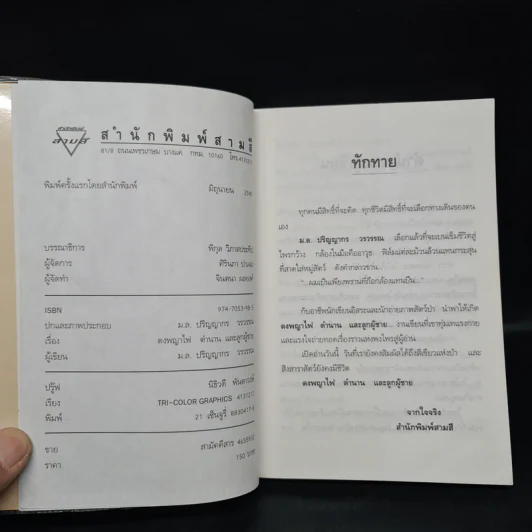 สำนักพิมพ์สามสี
สามสี
สำนักพิมพ์สามสี
81/8 ถนนเพชรเกษม บางแค กทม. 10160 โทร.
พิมพ์ครั้งแรกโดยสำนักพิมพ์ มิถุนายน
บรรณาธิการ พิกุล
ผู้จัดการ ศิรินภา
ผู้จัดทำ จินตนา
ISBN 974-7053-98-5
ปกและภาพประกอบ ม.ล. ปริญญากร วรวรรณ
เรื่อง ดงพญาไฟ ตำนาน และลูกผู้ชาย
ผู้เขียน ม.ล. ปริญญากร วรวรรณ
ปรู๊ฟ นิธิวดี
เรียง TRI-COLOR GRAPHICS
พิมพ์ 21 เซ็นจูรี่
ขาย สามัคคีสาร
ราคา 150 บาท
ทักทาย
ทุกคนมีสิทธิ์ที่จะคิด ทุกชีวิตมีสิทธิ์ที่จะเลือกทางเดินของตน
เอง
ม.ล. ปริญญากร วรวรรณ เลือกแล้วที่จะเบนเข็มชีวิตสู่
ไพรกว้าง กล้องในมือคืออาวุธ ฟิล์มแต่ละม้วนล้วนแทนกระสุน
ที่สาดใส่หมู่สัตว์ ดังคำกล่าวขาน...
"...ผมเป็นเพียงพรานที่ถือกล้องแทนปืน..."
กับอาชีพนักเขียนอิสระและนักถ่ายภาพสัตว์ป่า นำพาให้เกิด
ดงพญาไฟ ตำนาน และลูกผู้ชาย... งานเขียนที่เขาทุ่มเทแรงกาย
และแรงใจถ่ายทอดเรื่องราวแห่งพงไพรสู่ผู้อ่าน
เปิดอ่านวันนี้ วันที่เรายังคงสัมผัสได้ถึงสีเขียวแห่งป่า และ
สิงสาราสัตว์ยังคงมีชีวิต
ดงพญาไฟ ตำนาน และลูกผู้ชาย
จากใจจริง
สำนักพิมพ์สามสี